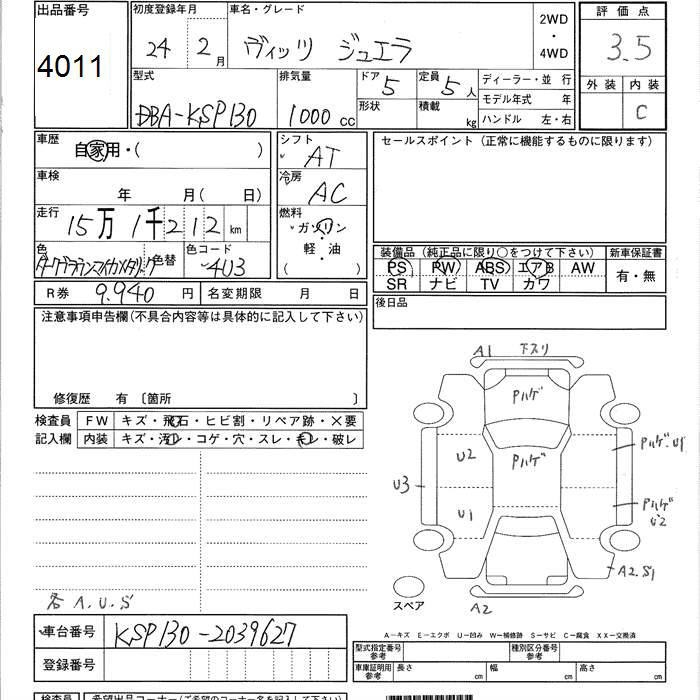 出品番号 初度登録年月 車名・グレード 2WD・4WD 評価点
4011 24年2月 ヴィッツ ジュエラ 3.5
型式 排気量 ドア 5 定員 5人 ディーラー・並行 外装 内装
DBA-KSP130 1000cc 形状 積載 kg モデル年式 年 C
ハンドル 左・右
車歴 シフト セールスポイント (正常に機能するものに限ります)
自家用・( ) AT
車検 冷房
年 月( 日) AC
走行 15万1千212km 燃料
ガソリン
色 色替 色コード 軽・油
4U3 ( )
装備品 (純正品に限り○をつけて下さい) 新車保証書
PS PW ABS エアB AW 有・無
SR ナビ TV カワ
R券 9,940円 名変期限 月 日 後日品
注意事項申告欄(不具合内容等は具体的に記入して下さい)
修復歴 有 〔箇所 〕
検査員 FW キズ・飛石・ヒビ割・リペア跡・×要
記入欄 内装 キズ・汚レ・コゲ・穴・スレ・キレ・破レ
A1 下スリ
Pハゲ
U2 Pハゲ Pハゲ・U1
U3
U1 Pハゲ U2
A2.S1
スペア A2
各 A.U.S
A-キズ E-エクボ U-凹み W-補修跡 S-サビ C-腐食 XX-交換済
車台番号 KSP130-2039627
型式指定番号 参考 種別区分番号 参考
登録番号 車庫証明用 参考 長さ cm 幅 cm 高さ cm
検査員 希望出品コーナー(ご希望のコーナー